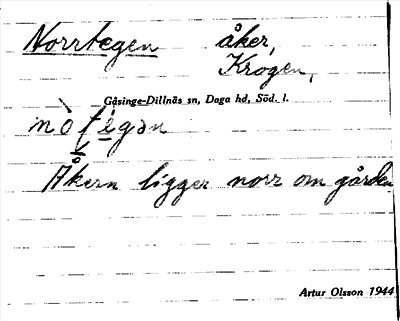 Norrtegen åker,
Krogen,
Gåsinge-Dillnäs sn, Daga hd, Söd. l.
Åkern ligger norr om gården
Artur Olsson 1944